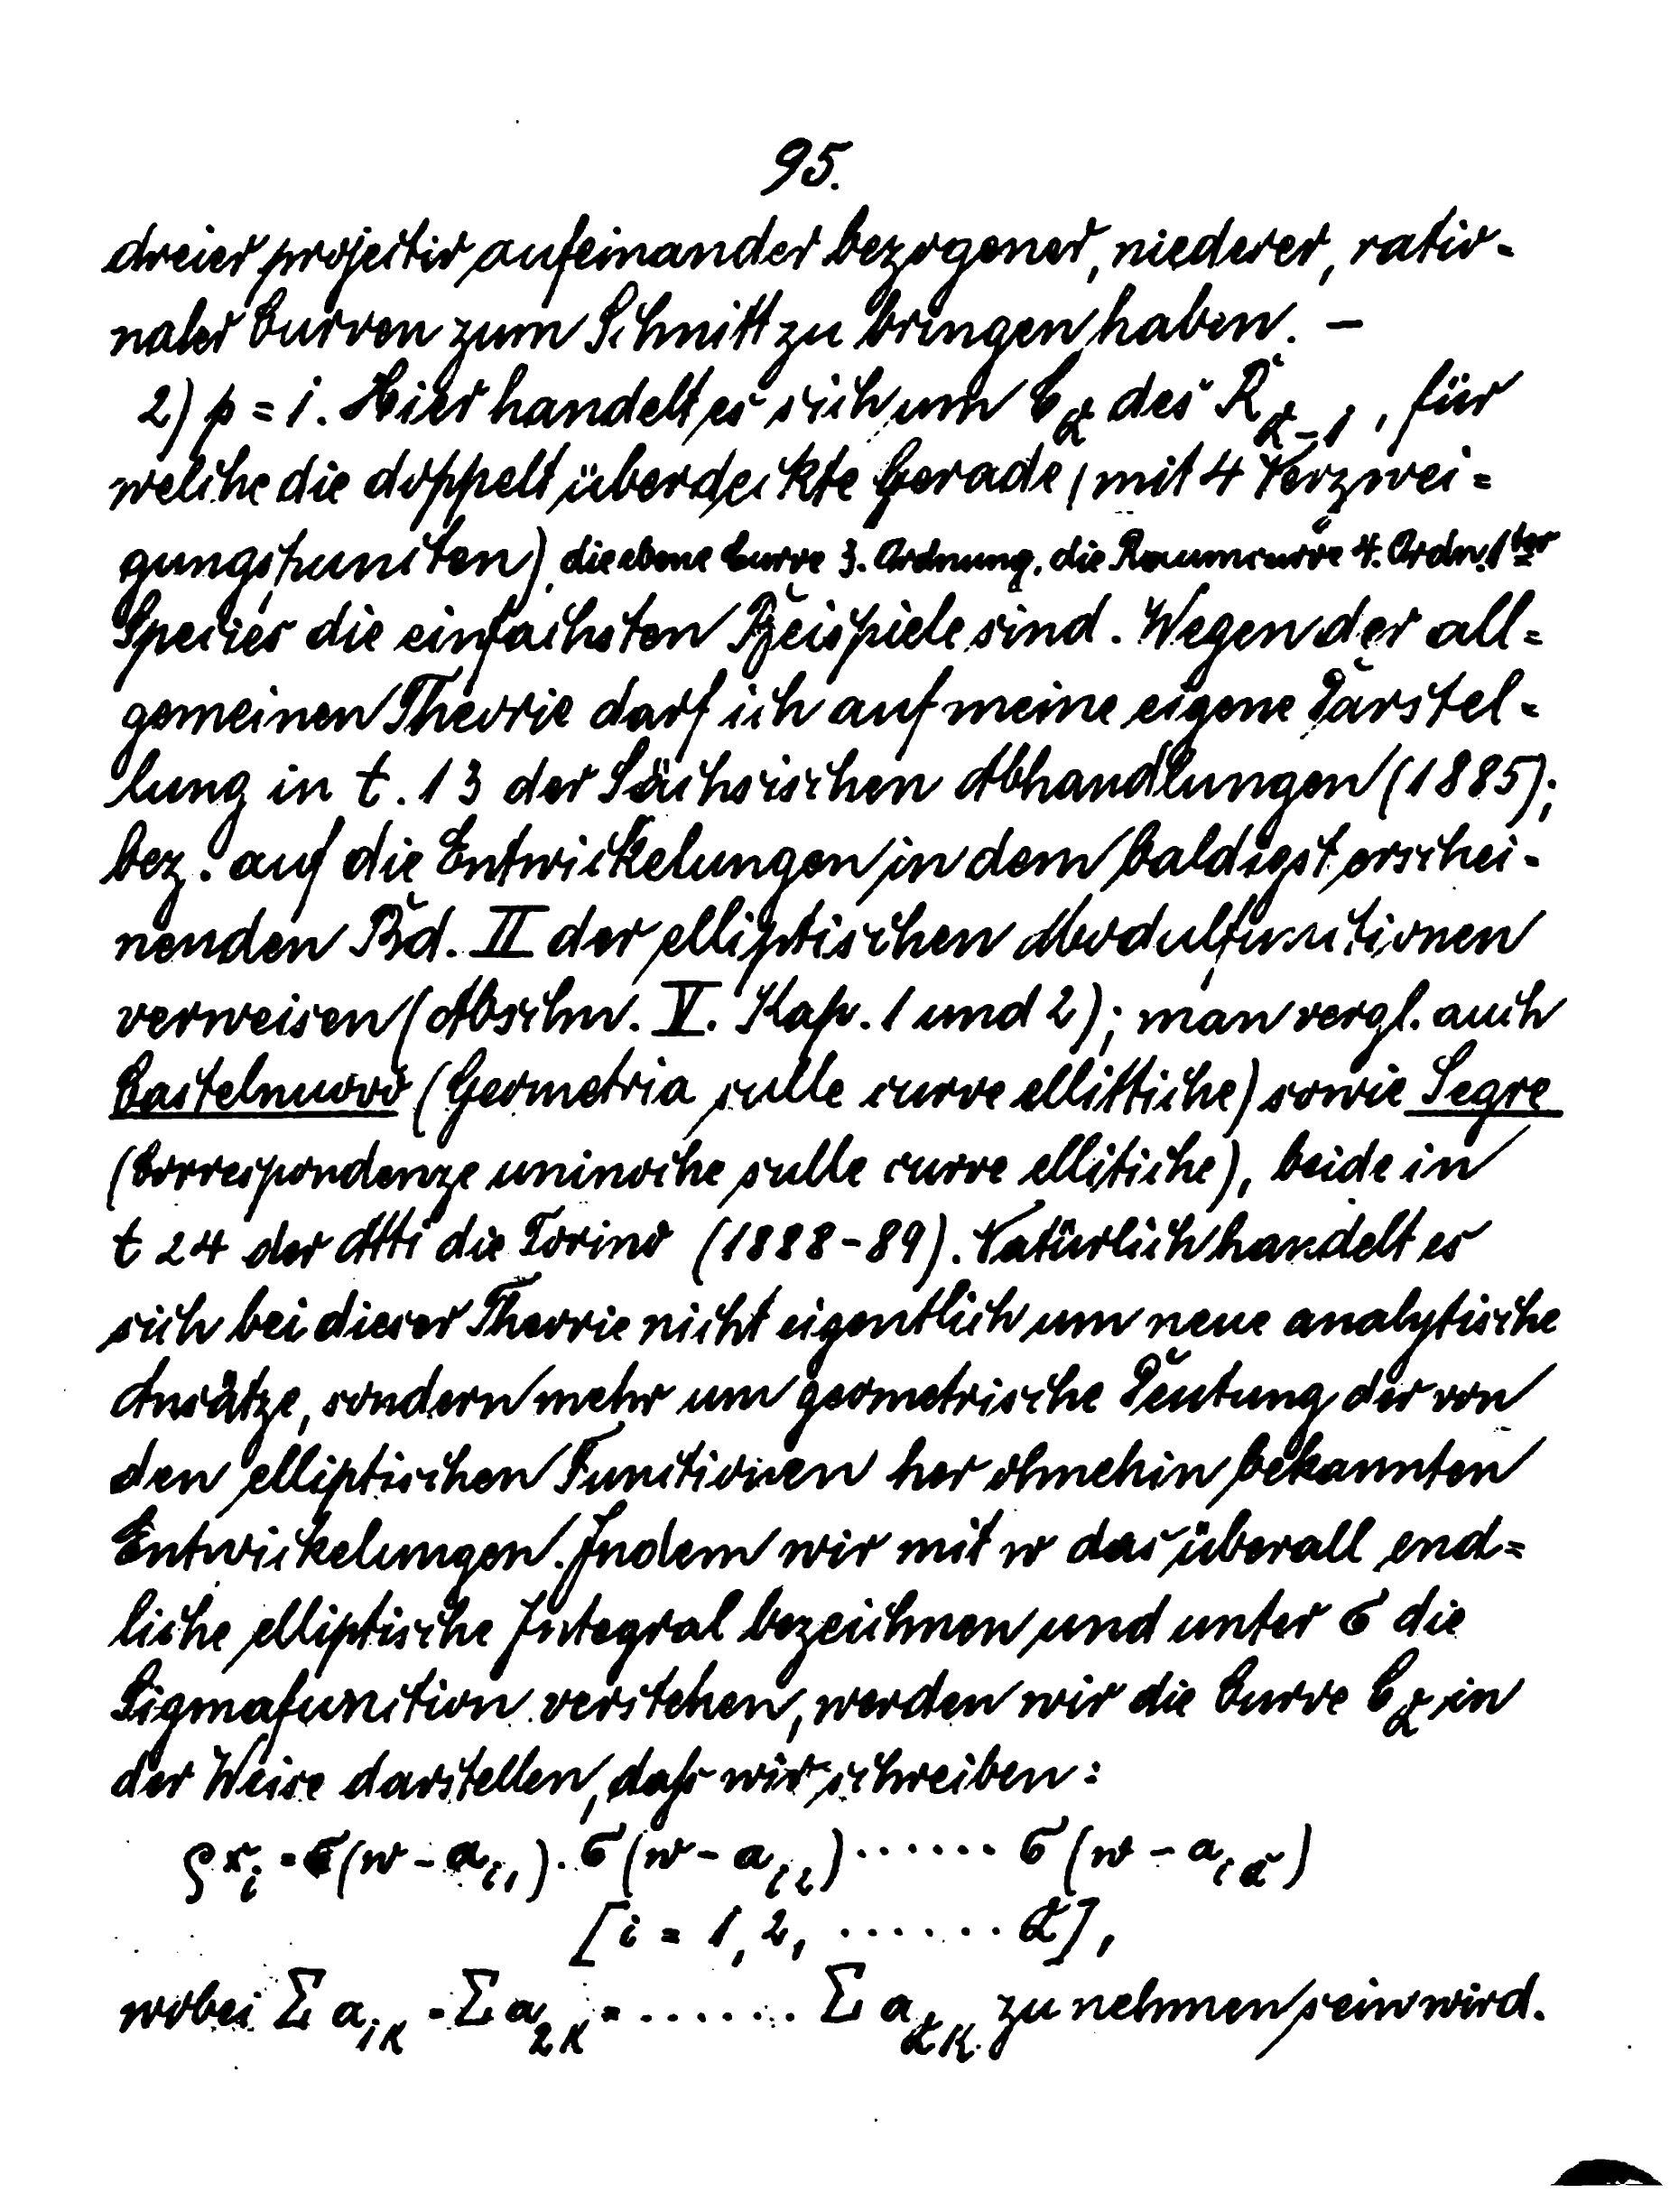 95.
dreier projectiv aufeinander bezogener, niederer, ratio-
naler Curven zum Schnitt zu bringen haben. –
2) p = 1. Hier handelt es sich um C_α des R_{α-1}, für
welche die doppelt überdeckte Gerade (mit 4 Verzwei=
gungspuncten), die ebene Curve 3. Ordnung, die Raumcurve 4. Ordn. 1ter
Species die einfachsten Beispiele sind. Wegen der all=
gemeinen Theorie darf ich auf meine eigene Darstel-
lung in t. 13 der Sächsischen Abhandlungen (1885);
bez. auf die Entwickelungen in dem baldigst erschei-
nenden Bd. II der elliptischen Modulfunctionen
verweisen (Abschn. V. Kap. 1 und 2); man vergl. auch
Castelnuovo (Geometria sulle curve ellittiche) sowie Segre
(Correspondenze uninoche sulle curve ellitiche), beide in
t 24 der Atti die Torino (1888-89). Natürlich handelt es
sich bei dieser Theorie nicht eigentlich um neue analytische
Ansätze, sondern mehr um geometrische Deutung der von
den elliptischen Functionen her ohnehin bekannten
Entwickelungen. Indem wir mit w das überall end=
liche elliptische Integral bezeichnen und unter σ die
Sigmafunction verstehen, werden wir die Curve C_α in
der Weise darstellen, daß wir schreiben:
ρx_i = σ(w - a_{i1}) . σ(w - a_{i2}) ...... σ(w - a_{iα})
[i = 1, 2, ...... α],
wobei Σ a_{1k} = Σ a_{2k} = ....... Σ a_{αk} zu nehmen sein wird.